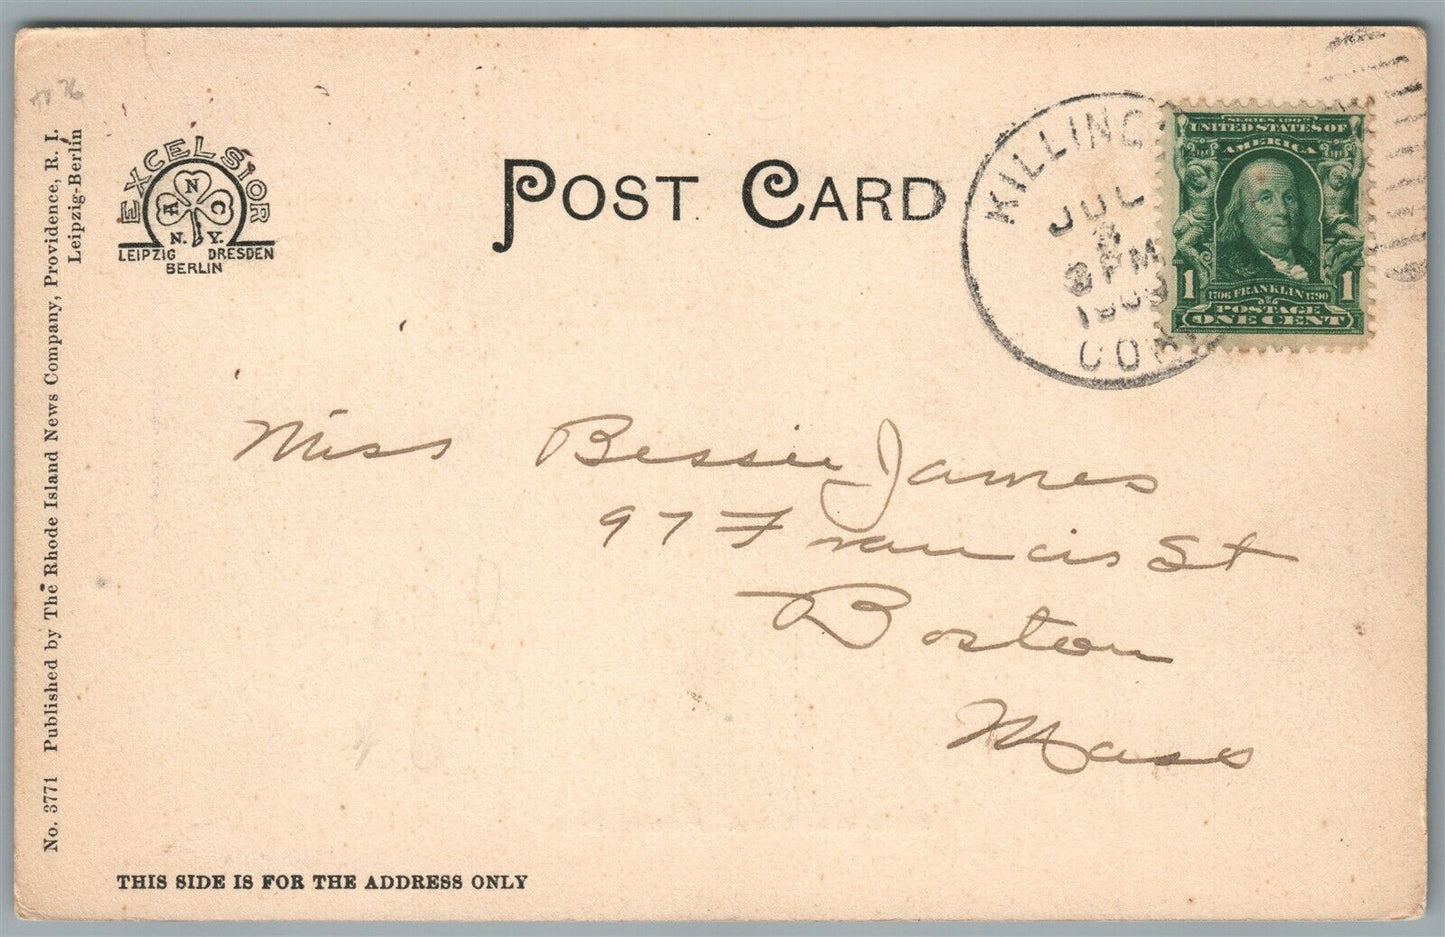 No. 3771 Published by The Rhode Island News Company, Providence, R. I.
Leipzig-Berlin
EXCELSIOR
A N C
N. Y.
LEIPZIG DRESDEN
BERLIN
POST CARD
KILLING
JUL
PM
CON
SERIES 1902
UNITED STATES OF
AMERICA
1 1
1706 FRANKLIN 1790
POSTAGE
ONE CENT
Miss Bessie James
97 Francis St
Boston
Mass
THIS SIDE IS FOR THE ADDRESS ONLY